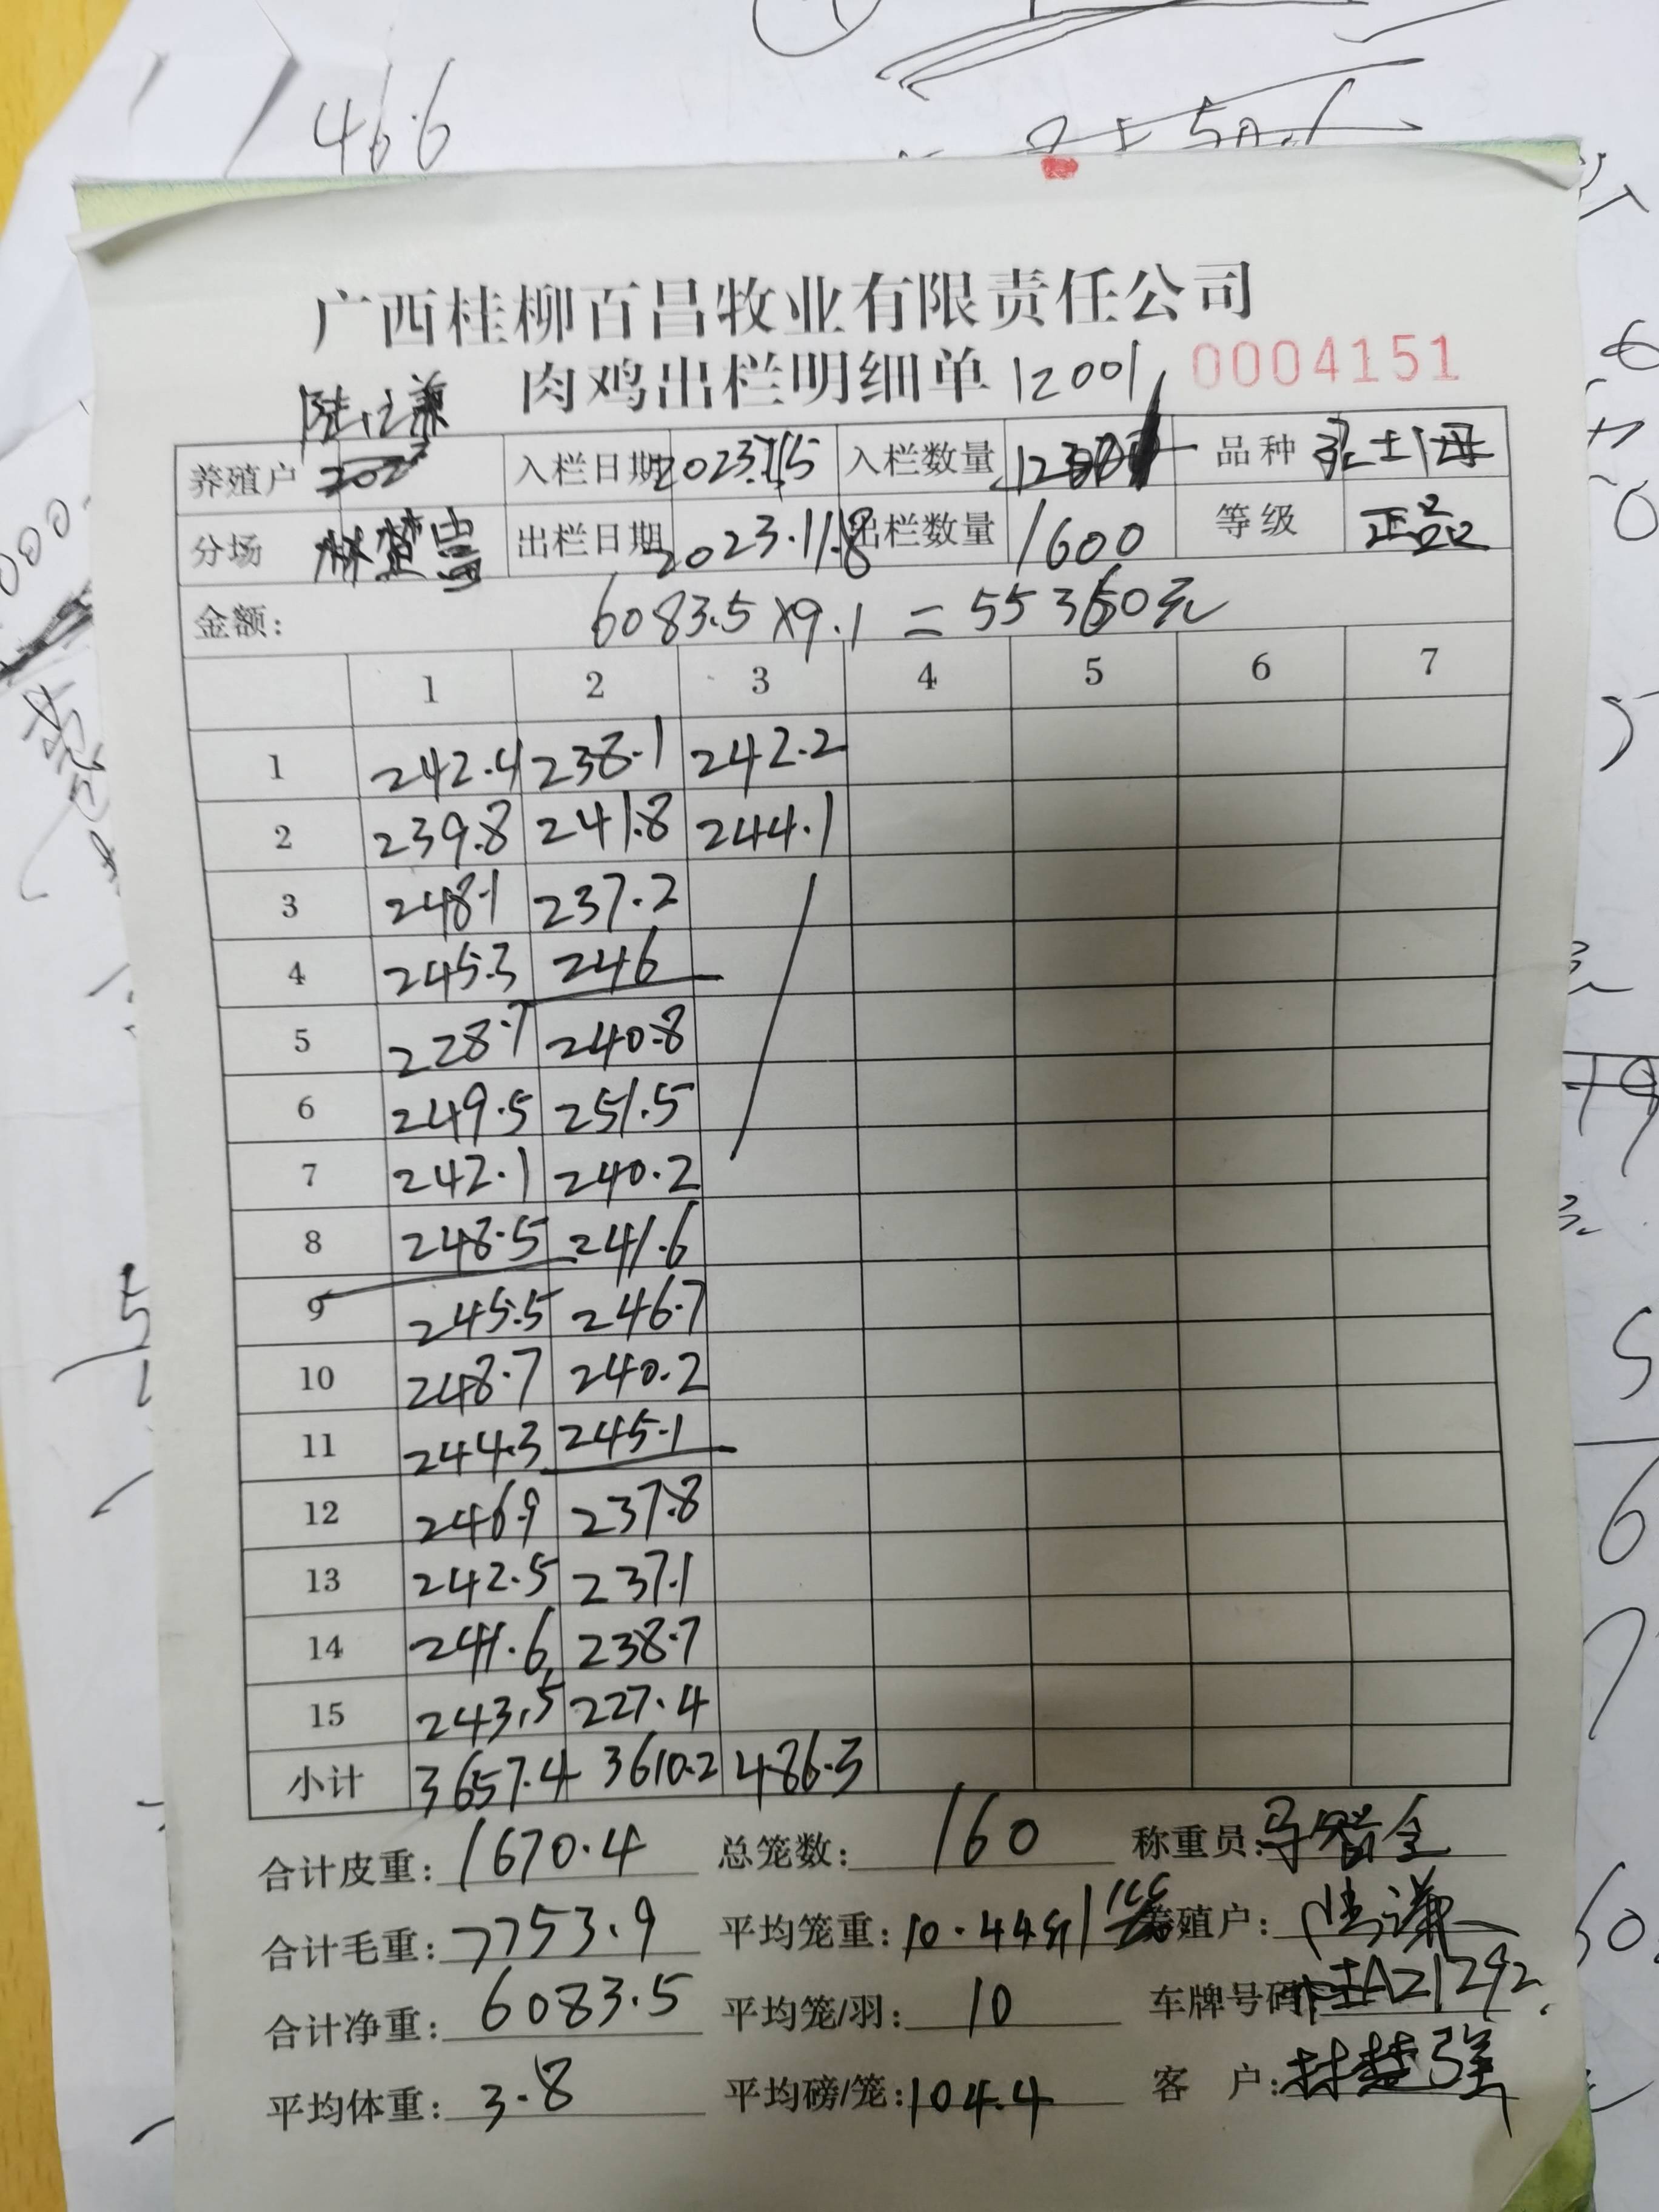 466
广西桂柳百昌牧业有限责任公司
肉鸡出栏明细单 12001 0004151
养殖户 入栏日期 2023.7.15 入栏数量 品种 土1母
分场 出栏日期 2023.11.8 出栏数量 1600 等级 正品
金额: 6083.5×9.1=55360元
1 2 3 4 5 6 7
1 242.4 238.1 242.2
2 239.8 241.8 244.1
3 248.1 237.2
4 245.3 246
5 228.7 240.8
6 249.5 251.5
7 242.1 240.2
8 248.5 241.6
9 245.5 246.7
10 248.7 240.2
11 244.3 245.1
12 246.9 237.8
13 242.5 237.1
14 241.6 238.7
15 243.5 227.4
小计 3657.4 3610.2 486.3
合计皮重: 1670.4 总笼数: 160 称重员:
合计毛重: 7753.9 平均笼重: 10.44 养殖户:
合计净重: 6083.5 平均笼/羽: 10 车牌号码: 桂AZ1292
平均体重: 3.8 平均磅/笼: 104.4 客户: 林楚强